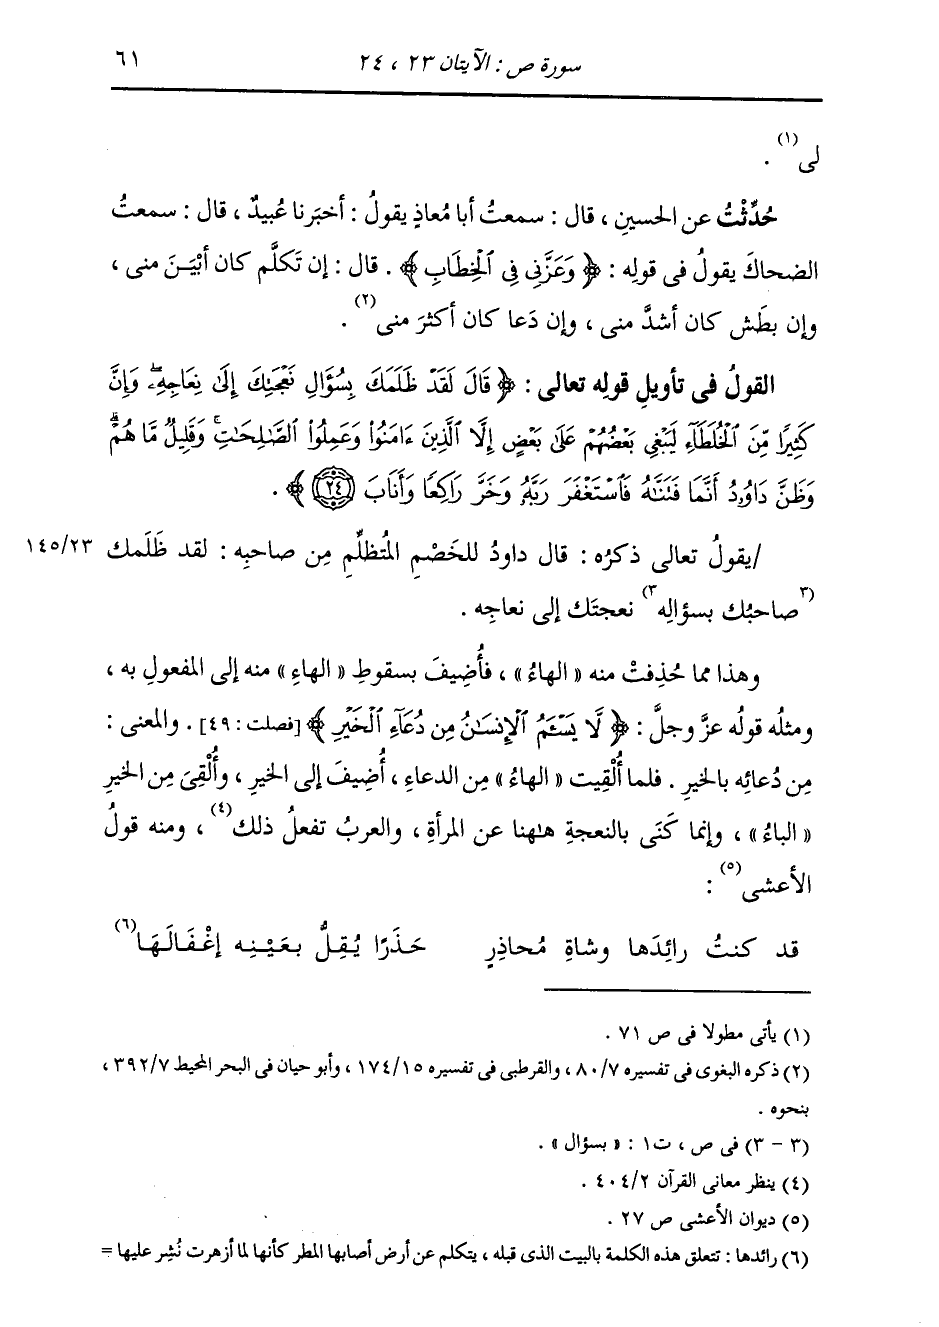 سورة ص : الآيتان ٢٣ ، ٢٤
٦١
لى(١) .
حُدِّثْتُ عن الحسينِ ، قال : سمعتُ أبا مُعاذٍ يقولُ : أخبَرنا عُبيدٌ ، قال : سمعتُ
الضحاكَ يقولُ فى قولِه : ﴿ وَعَزَّنِى فِى ٱلْخِطَابِ ﴾ . قال : إن تَكلَّم كان أبْيَنَ منى ،
وإن بطَش كان أشدَّ منى ، وإن دَعا كان أكثرَ منى(٢) .
القولُ فى تأويلِ قولِه تعالى : ﴿ قَالَ لَقَدْ ظَلَمَكَ بِسُؤَالِ نَعْجَتِكَ إِلَىٰ نِعَاجِهِۦۖ وَإِنَّ
كَثِيرًا مِّنَ ٱلْخُلَطَآءِ لَيَبْغِى بَعْضُهُمْ عَلَىٰ بَعْضٍ إِلَّا ٱلَّذِينَ ءَامَنُوا۟ وَعَمِلُوا۟ ٱلصَّـٰلِحَـٰتِ وَقَلِيلٌ مَّا هُمْۗ
وَظَنَّ دَاوُۥدُ أَنَّمَا فَتَنَّـٰهُ فَٱسْتَغْفَرَ رَبَّهُۥ وَخَرَّ رَاكِعًا وَأَنَابَ ۝٢٤ ﴾ .
/يقولُ تعالى ذكرُه : قال داودُ للخَصْمِ المُتظلِّمِ مِن صاحبِه : لقد ظَلَمك ١٤٥/٢٣
(٣صاحبُك بسؤالِه٣) نعجتَك إلى نعاجِه .
وهذا مما حُذِفتْ منه « الهاءُ » ، فأُضِيفَ بسقوطِ « الهاءِ » منه إلى المفعولِ به ،
ومثلُه قولُه عزَّ وجلَّ : ﴿ لَّا يَسْـَٔمُ ٱلْإِنسَـٰنُ مِن دُعَآءِ ٱلْخَيْرِ ﴾ [فصلت : ٤٩] . والمعنى :
مِن دُعائِه بالخيرِ . فلما أُلْقِيت « الهاءُ » مِن الدعاءِ ، أُضِيفَ إلى الخيرِ ، وأُلْقِىَ مِن الخيرِ
« الباءُ » ، وإنما كَنَى بالنعجةِ هـٰهنا عن المرأةِ ، والعربُ تفعلُ ذلك(٤) ، ومنه قولُ
الأعشى(٥) :
قد كنتُ رائِدَها وشاةِ مُحاذِرٍ حَذَرًا يُقِلُّ بعَيْنِه إغْفَالَهَا(٦)
(١) يأتى مطولا فى ص ٧١ .
(٢) ذكره البغوى فى تفسيره ٨٠/٧ ، والقرطبى فى تفسيره ١٧٤/١٥ ، وأبو حيان فى البحر المحيط ٣٩٢/٧ ،
بنحوه .
(٣ - ٣) فى ص ، ت١ : « بسؤال » .
(٤) ينظر معانى القرآن ٤٠٤/٢ .
(٥) ديوان الأعشى ص ٢٧ .
(٦) رائدها : تتعلق هذه الكلمة بالبيت الذى قبله ، يتكلم عن أرض أصابها المطر كأنها لما أزهرت نُشِر عليها =